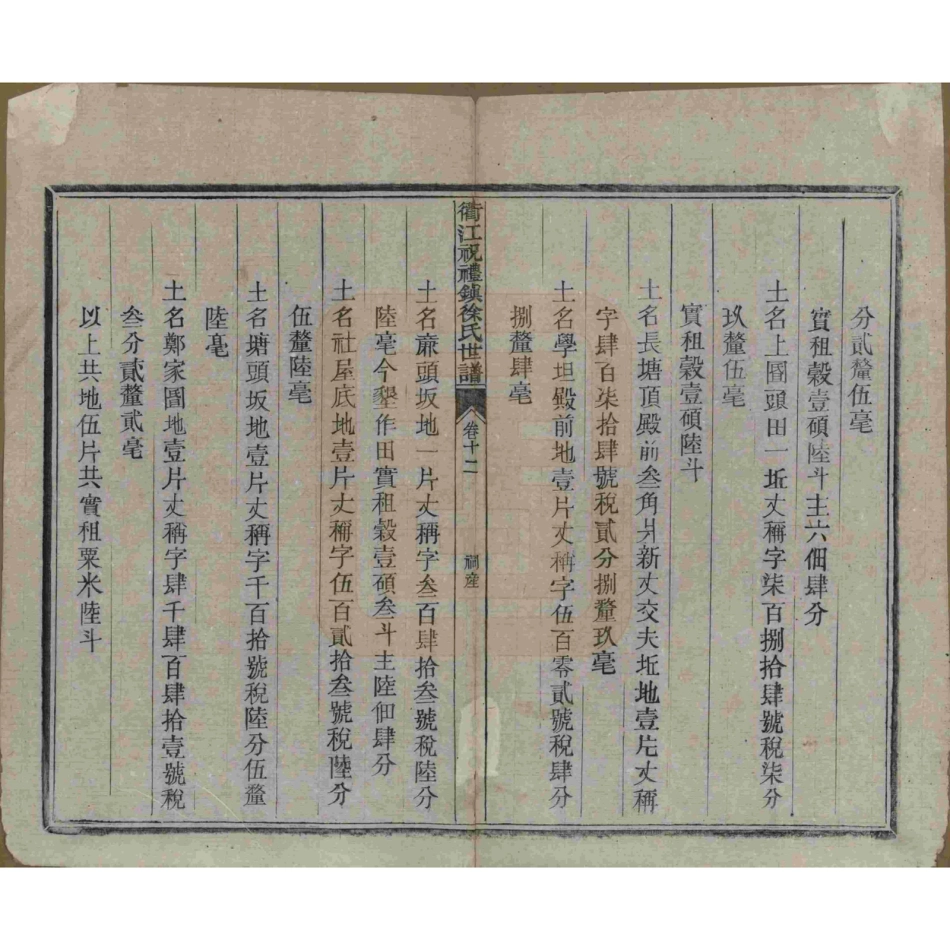 分貳釐伍毫
實租穀壹碩陸斗主六佃肆分
土名上圂頭田一坵丈稱字柒百捌拾肆號稅柒分
玖釐伍毫
實租穀壹碩陸斗
土名長塘頂殿前叁角爿新丈交夫坵地壹片丈稱
字肆百柒拾肆號稅貳分捌釐玖毫
土名學坦殿前地壹片丈稱字伍百零貳號稅肆分
捌釐肆毫
衢江祝禮鎮徐氏世譜 卷十二 祠產
土名廉頭坂地一片丈稱字叁百肆拾叁號稅陸分
陸毫今墾作田實租穀壹碩叁斗主陸佃肆分
土名社屋底地壹片丈稱字伍百貳拾叁號稅陸分
伍釐陸毫
土名塘頭坂地壹片丈稱字千百拾號稅陸分伍釐
陸毫
土名鄭家圂地壹片丈稱字肆千肆百肆拾壹號稅
叁分貳釐貳毫
以上共地伍片共實租粟米陸斗